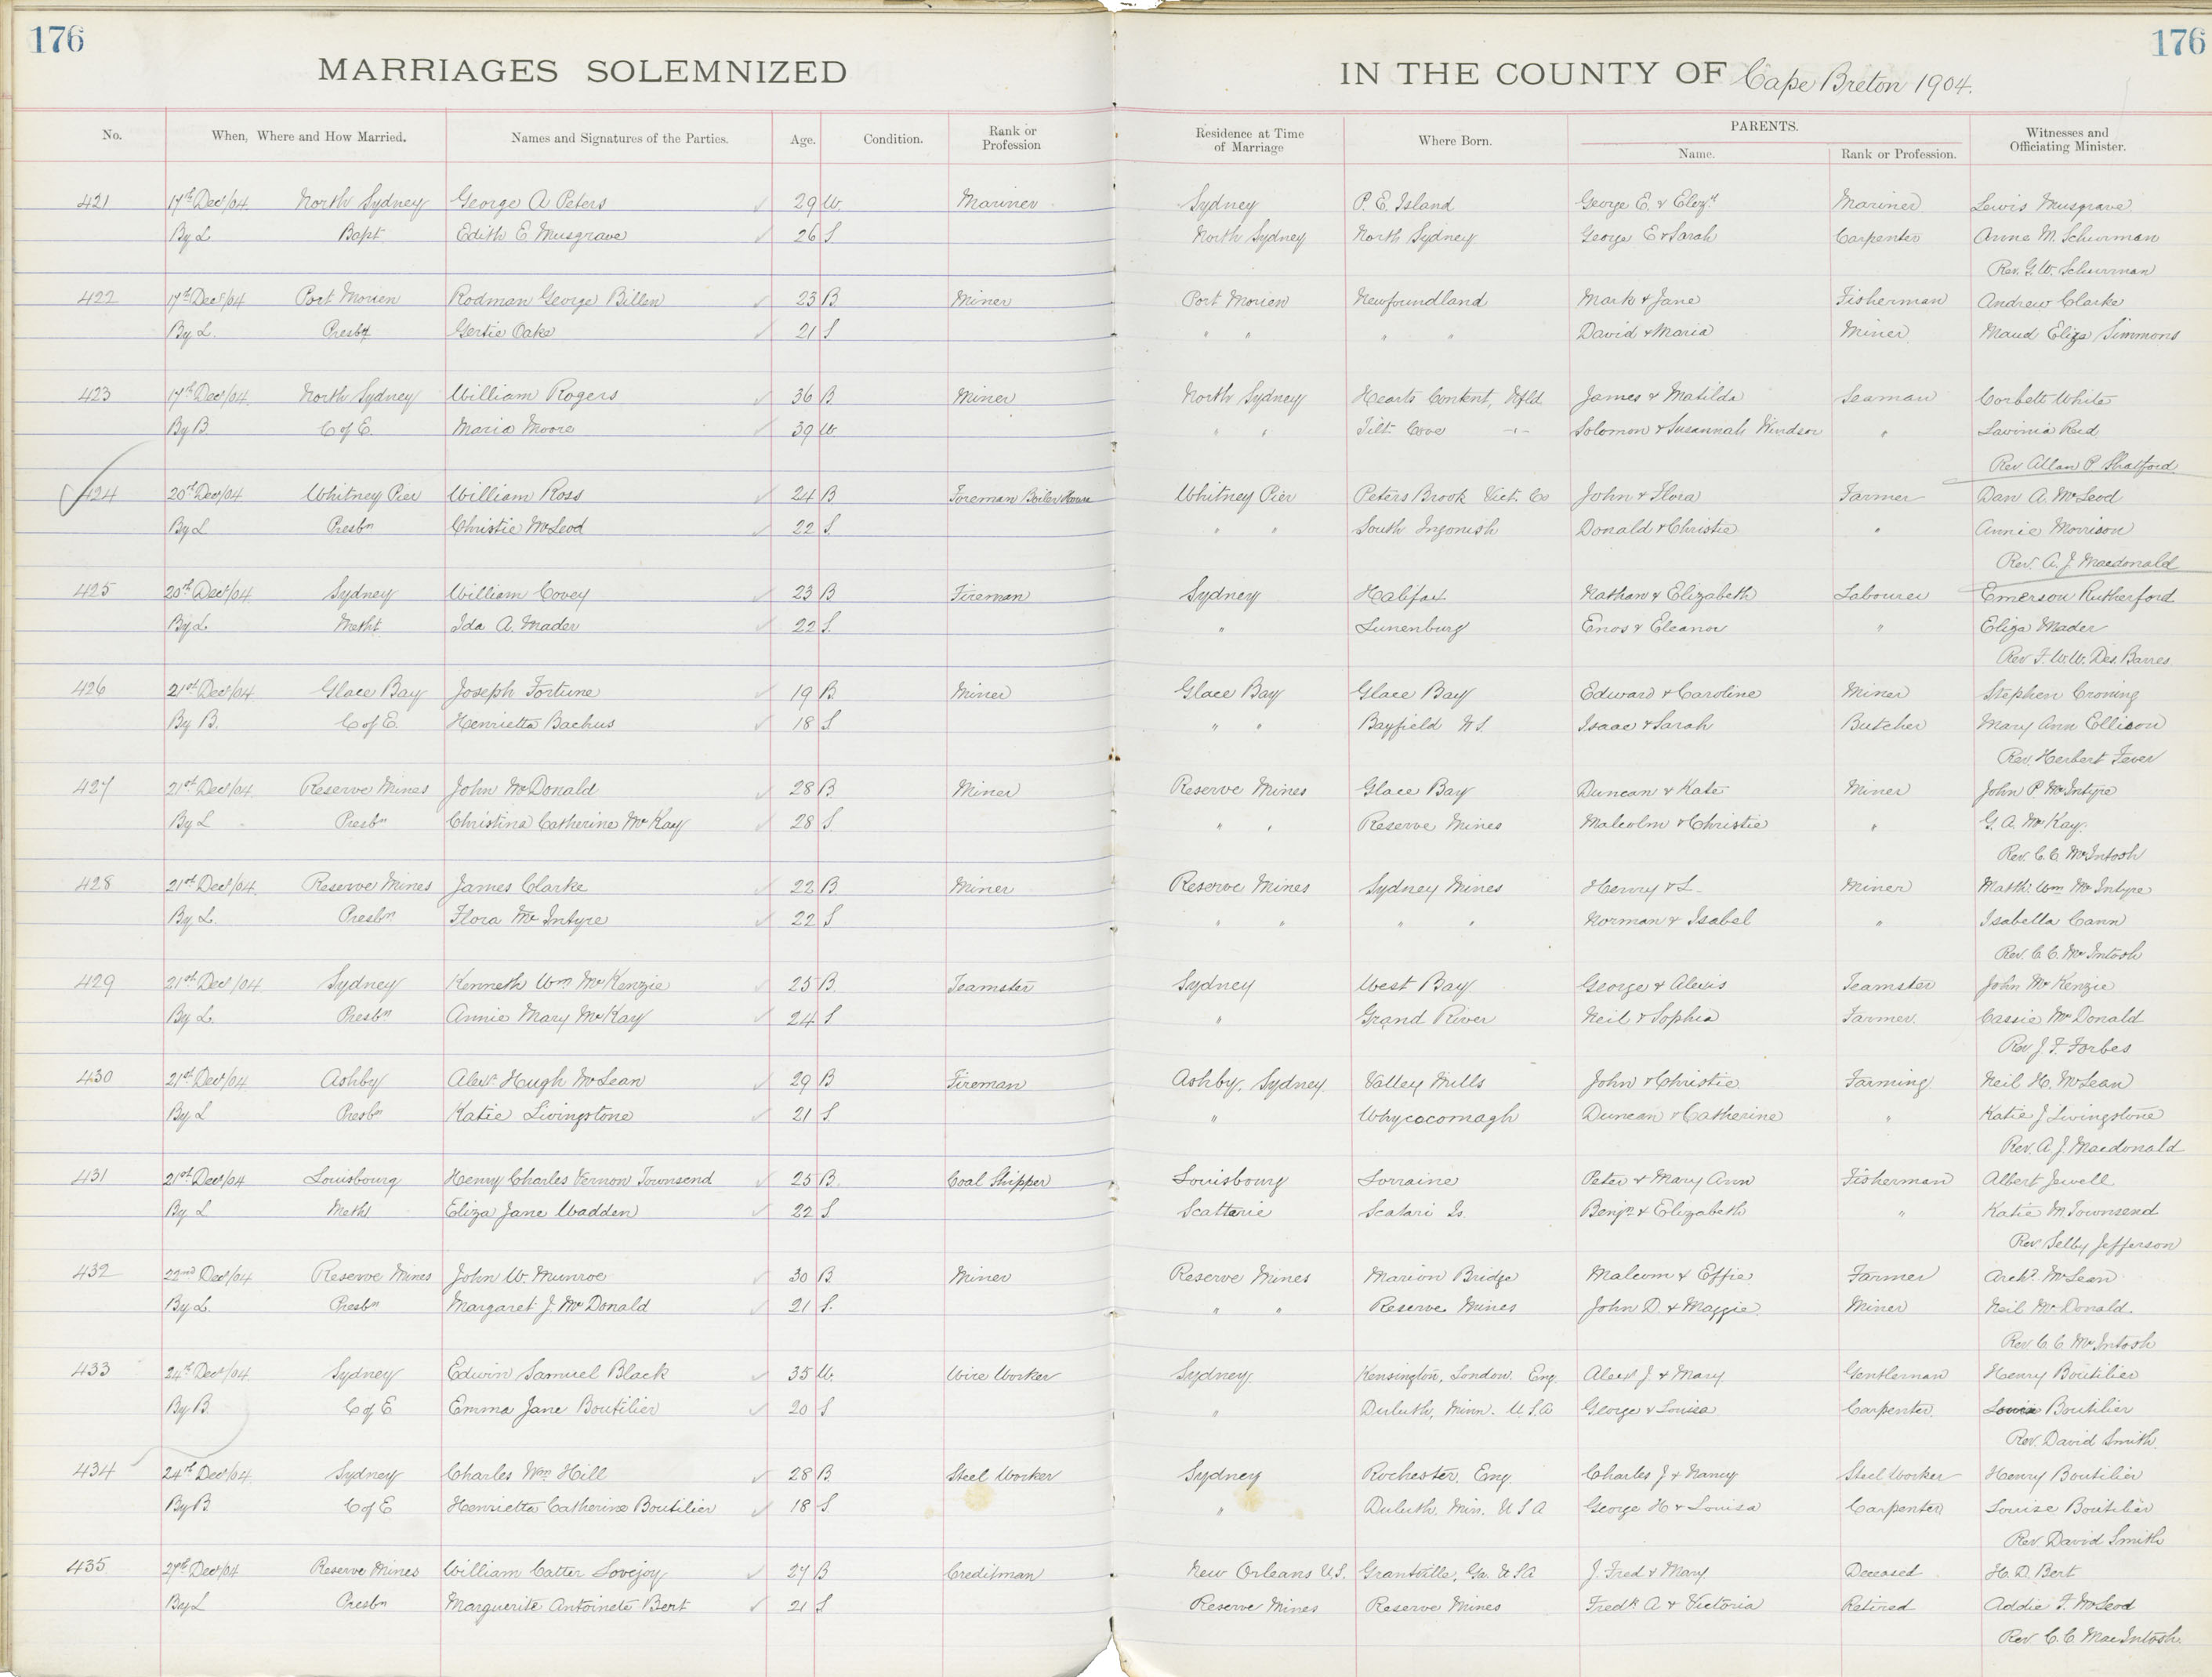 176 176
MARRIAGES SOLEMNIZED IN THE COUNTY OF Cape Breton 1904.
No. When, Where and How Married. Names and Signatures of the Parties. Age. Condition. Rank or Profession Residence at Time of Marriage Where Born. PARENTS. Name. Rank or Profession. Witnesses and Officiating Minister.
421 17th Decr/04 North Sydney George A Peters 29 W Mariner Sydney P. E. Island George E. & Elizth Mariner Lewis Musgrave
By L Bapt Edith E Musgrave 26 S North Sydney North Sydney George E & Sarah Carpenter Anne M. Schurman
Rev. G. W. Schurman
422 17th Decr/04 Port Morien Rodman George Billen 23 B Miner Port Morien Newfoundland Mark & Jane Fisherman Andrew Clarke
By L. Presbn Gertie Oake 21 S " " " " David & Maria Miner Maud Eliza Simmons
423 17th Decr/04 North Sydney William Rogers 36 B Miner North Sydney Hearts Content, Nfld James & Matilda Seaman Corbett White
By B. C of E. Maria Moore 39 W " " Tilt Cove -"- Solomon & Susannah Windsor " Lavinia Reid
Rev Allan P. Shatford
424 20th Decr/04 Whitney Pier William Ross 24 B Foreman Boiler House Whitney Pier Peters Brook Vict. Co John & Flora Farmer Dan A. McLeod
By L Presbn Christie McLeod 22 S. " " South Ingonish Donald & Christie " Annie Morrison
Rev. A. J. Macdonald
425 20th Decr/04 Sydney William Covey 23 B Fireman Sydney Halifax Nathan & Elizabeth Labourer Emerson Rutherford
By L Metht Ida A. Mader 22 S. " Lunenburg Enos & Eleanor " Eliza Mader
Rev F. W. W. Des. Barres
426 21st Decr/04 Glace Bay Joseph Fortune 19 B. Miner Glace Bay Glace Bay Edward & Caroline Miner Stephen Croning
By B. C of E. Henrietta Bachus 18 S " " Bayfield N S. Isaac & Sarah Butcher Mary Ann Ellison
Rev. Herbert Fever
427 21st Decr/04 Reserve Mines John McDonald 28 B Miner Reserve Mines Glace Bay Duncan & Kate Miner John P. McIntyre
By L Presbn Christina Catherine McKay 28 S. " " Reserve Mines Malcolm & Christie " G. A. McKay.
Rev. C. C. McIntosh
428 21st Decr/04 Reserve Mines James Clarke 22 B Miner Reserve Mines Sydney Mines Henry & L- Miner Matth. Wm McIntyre
By L. Presbn Flora McIntyre 22 S " " " " Norman & Isabel " Isabella Cann
Rev. C. C. McIntosh
429 21st Decr/04 Sydney Kenneth Wm McKenzie 25 B. Teamster Sydney West Bay George & Alexis Teamster John McKenzie
By L. Presbn Annie Mary McKay 24 S " Grand River Neil & Sophia Farmer. Cassie McDonald
Rev. J. F. Forbes
430 21st Decr/04 Ashby Alexr Hugh McLean 29 B Fireman Ashby, Sydney Valley Mills John & Christie Farming Neil H. McLean
By L Presbn Katie Livingstone 21 S. " Whycocomagh Duncan & Catherine " Katie J Livingstone
Rev. A. J. Macdonald
431 21st Decr/04 Louisbourg Henry Charles Vernon Townsend 25 B. Coal Shipper Louisbourg Lorraine Peter & Mary Ann Fisherman Albert Jewell
By L Metht Eliza Jane Wadden 22 S Scatterie Scatari Is. Benjn & Elizabeth " Katie M. Townsend
Rev Selby Jefferson
432 22nd Decr/04 Reserve Mines John W. Munroe 30 B. Miner Reserve Mines Marion Bridge Malcom & Effie Farmer Archd. McLean
By L. Presbn Margaret J. McDonald 21 S. " " Reserve Mines John D. & Maggie. Miner Neil McDonald.
Rev. C. C. McIntosh
433 24th Decr/04 Sydney Edwin Samuel Black 35 W. Wire Worker Sydney Kensington, London. Eng. Alexr J & Mary Gentleman Henry Boutilier
By B. C of E Emma Jane Boutilier 20 S " Duluth, Minn. U S A George & Louisa Carpenter Boutilier
Rev. David Smith
434 24th Decr/04. Sydney Charles Wm Hill 28 B. Steel Worker Sydney Rochester, Eng. Charles J & Nancy Steel Worker Henry Boutilier
By B C of E Henrietta Catherine Boutilier 18 S. " Duluth. Min. U S A George H & Louisa Carpenter Louise Boutilier
Rev. David Smith
435 27th Decr/04 Reserve Mines William Catter Lovejoy 27 B Creditman New Orleans U.S. Grantville, Ga. U S A J. Fred & Mary Deceased H. D. Bert
By L Presbn Marguerite Antoinete Bert 21 S Reserve Mines Reserve Mines Fredk A & Victoria Retired Addie F. McLeod
Rev. C. C. MacIntosh.